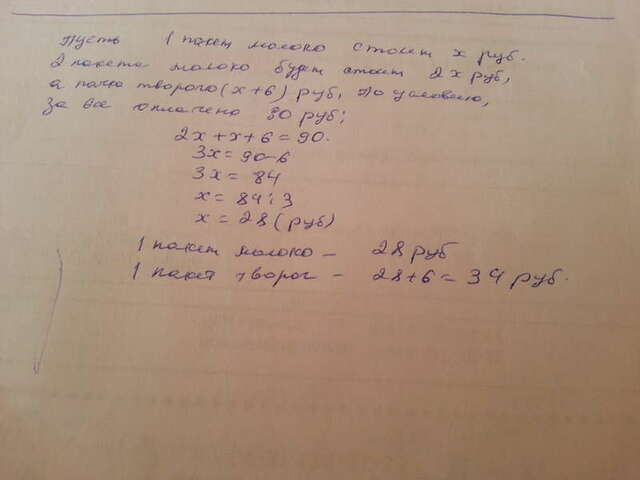 Пусть 1 пакет молоко стоит x руб.
2 пакета молоко будет стоит 2x руб,
а пачка творога (x+6) руб, по условию,
за все оплачено 90 руб;
2x+x+6=90.
3x=90-6
3x=84
x=84:3
x=28(руб)
1 пакет молоко - 28 руб
1 пакет творог - 28+6=34 руб.